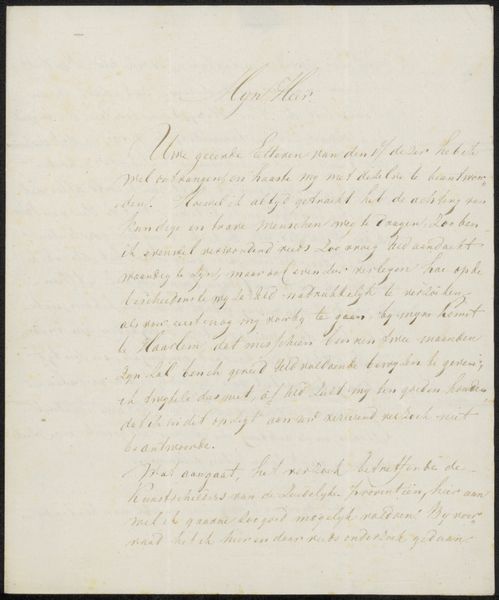 Myn Heer.
Uwe geëerde Letteren van den 17 dezer heb ik
wel ontvangen, en haaste my met dezelve te beantwoor
den. Hoewel ik altyd getracht heb de achting van
kundige en brave menschen weg te dragen, Zoo ben
ik evenwel verwonderd reeds Zoo vroeg UEd aandacht
waardig te Zyn, maar ook even zeer verlegen hoe op de
bescheidenste wyze UEd nadrukkelyk te verzoeken
als voor eerst nog my voorby te gaan. by myne komst
te Haarlem dat misschien binnen twee maanden
Zyn Zal ben ik gereed UEd voldoende bewyzen te geven,
ik twyfele dus niet, of UEd Zult my ten goeden houden
dat ik in dit opzigt aan uw vereerend verzoek niet
beantwoorde.
Wat aangaat, het verzoek betreffende de
Kunstschilders van de Zuidelyke Provintiën, hier aan
wil ik gaarne Zoo goed mogelyk voldoen. By voor
raad heb ik hier en daar reeds onderzoek gedaan